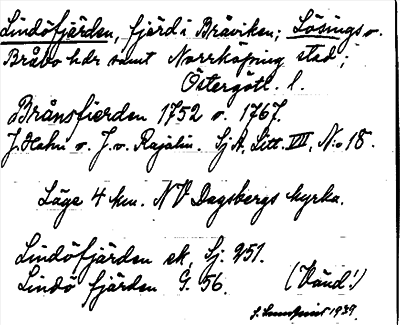 Lindöfjärden, fjärd i Bråviken; Lösings o.
Bråbo hdr samt Norrköping stad;
Östergötl. l.
Brånsfierden 1752 o. 1767.
J. Hahn o. J. v. Rajalin. Sj A, Litt. VIII, N:o 18.
Läge 4 km. NV Dagsbergs kyrka.
Lindöfjärden ek, Sj. 251.
Lindö fjärden G. 56.
(Vänd!)
1939